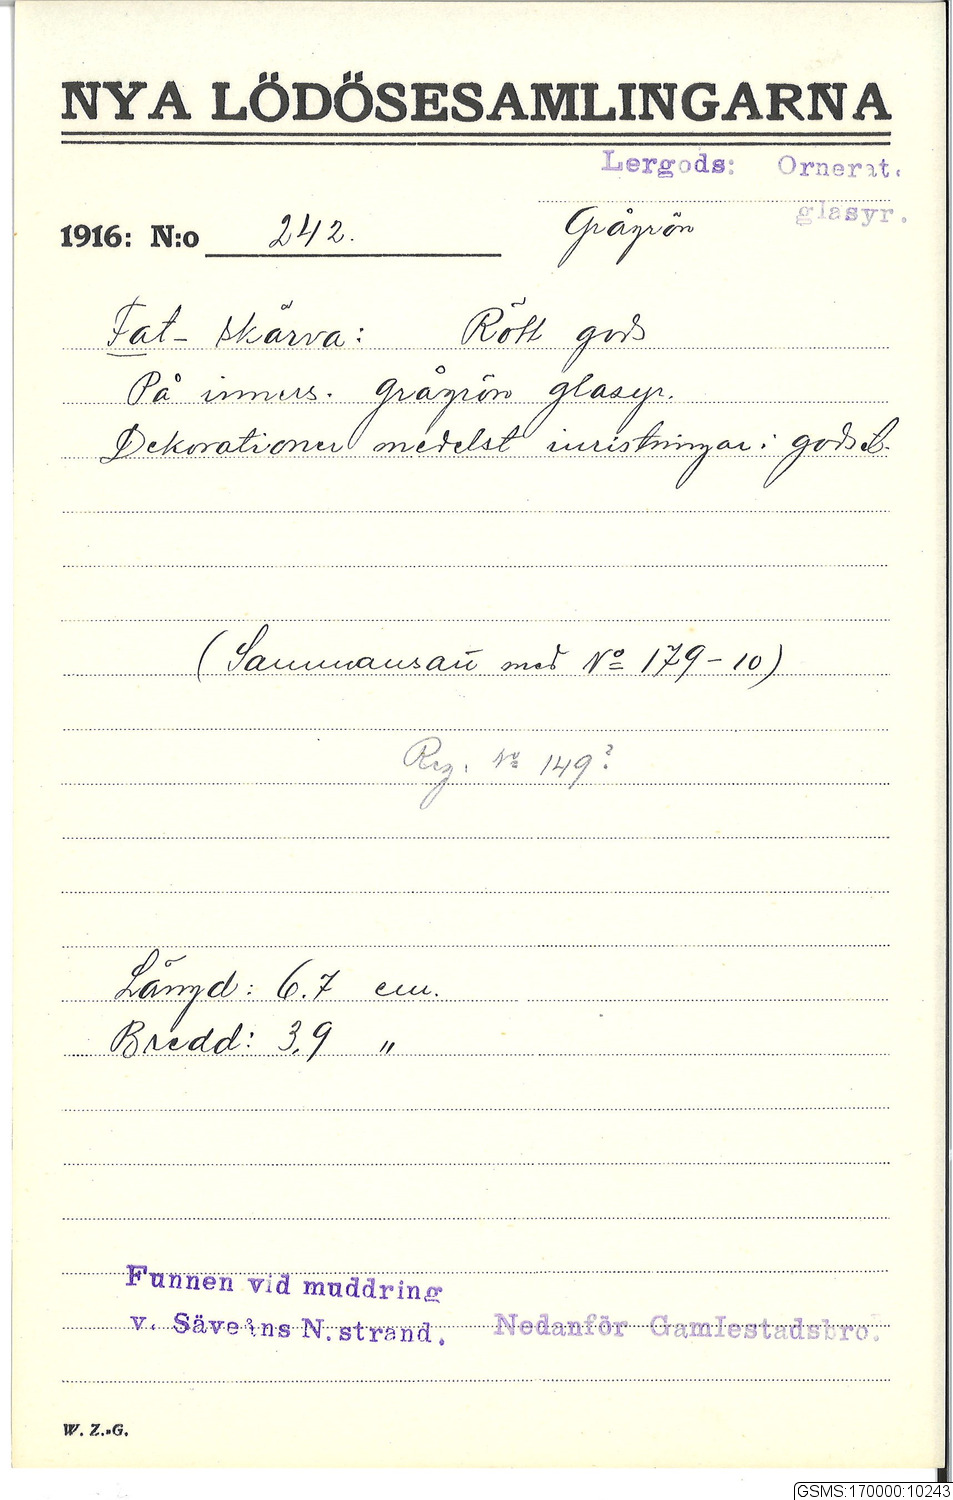 NYA LÖDÖSESAMLINGARNA
Lergods: Ornerat.
glasyr.
1916: N:o 242. Grågrön
Fat- skärva: Rött gods
På inners. grågrön glasyr.
Dekorationer medelst inristningar i godset.
(Sammansatt med No 179-10)
Reg. No 149?
Längd: 6.7 cm.
Bredd: 3,9 "
Funnen vid muddring
v. Säveåns N. strand. Nedanför Gamlestadsbro.
W. Z.-G.
GSMS:170000:10243